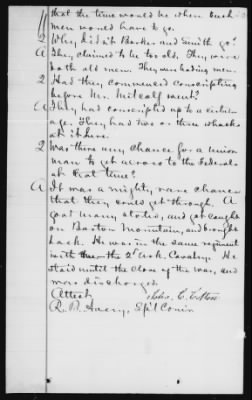 that the time would be when such
men would have to go.
Q Why didn't Barker and Smith go?
A They claimed to be too old. They were
both old men. They were hiding men.
Q Had they commenced conscripting
before Mr. Metcalf went?
A They had conscripted up to a certain
age. They had two or three whacks
at it here.
Q Was there any chance for a union
man to get across to the Federals
at that time?
A It was a mighty rare chance
that they could get through. A
good many started, and got caught
on Boston Mountain, and brought
back. He was in the same regiment
with the 2d Ark. Cavalry. He
staid until the close of the war, and
was discharged.
Attest Chas. C.
R. B. Avery, Sp'l Com'r